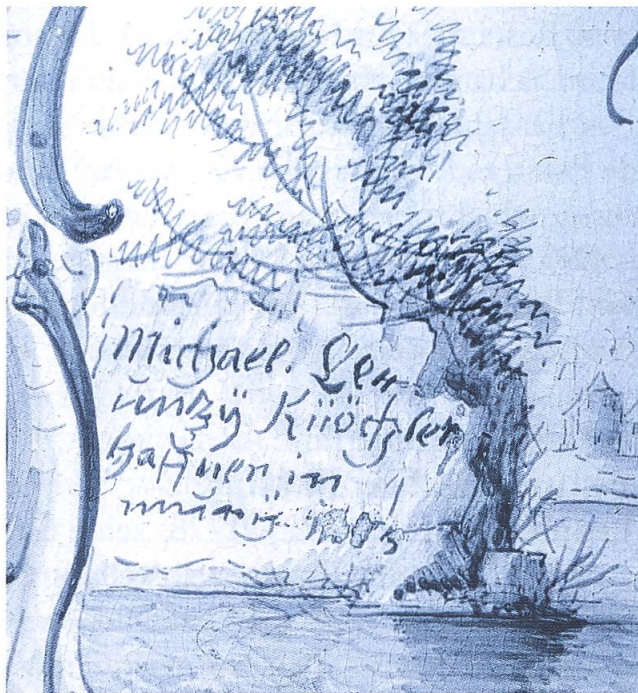 Michael. Leu
untzÿ Küöchler
haffner in
murÿ